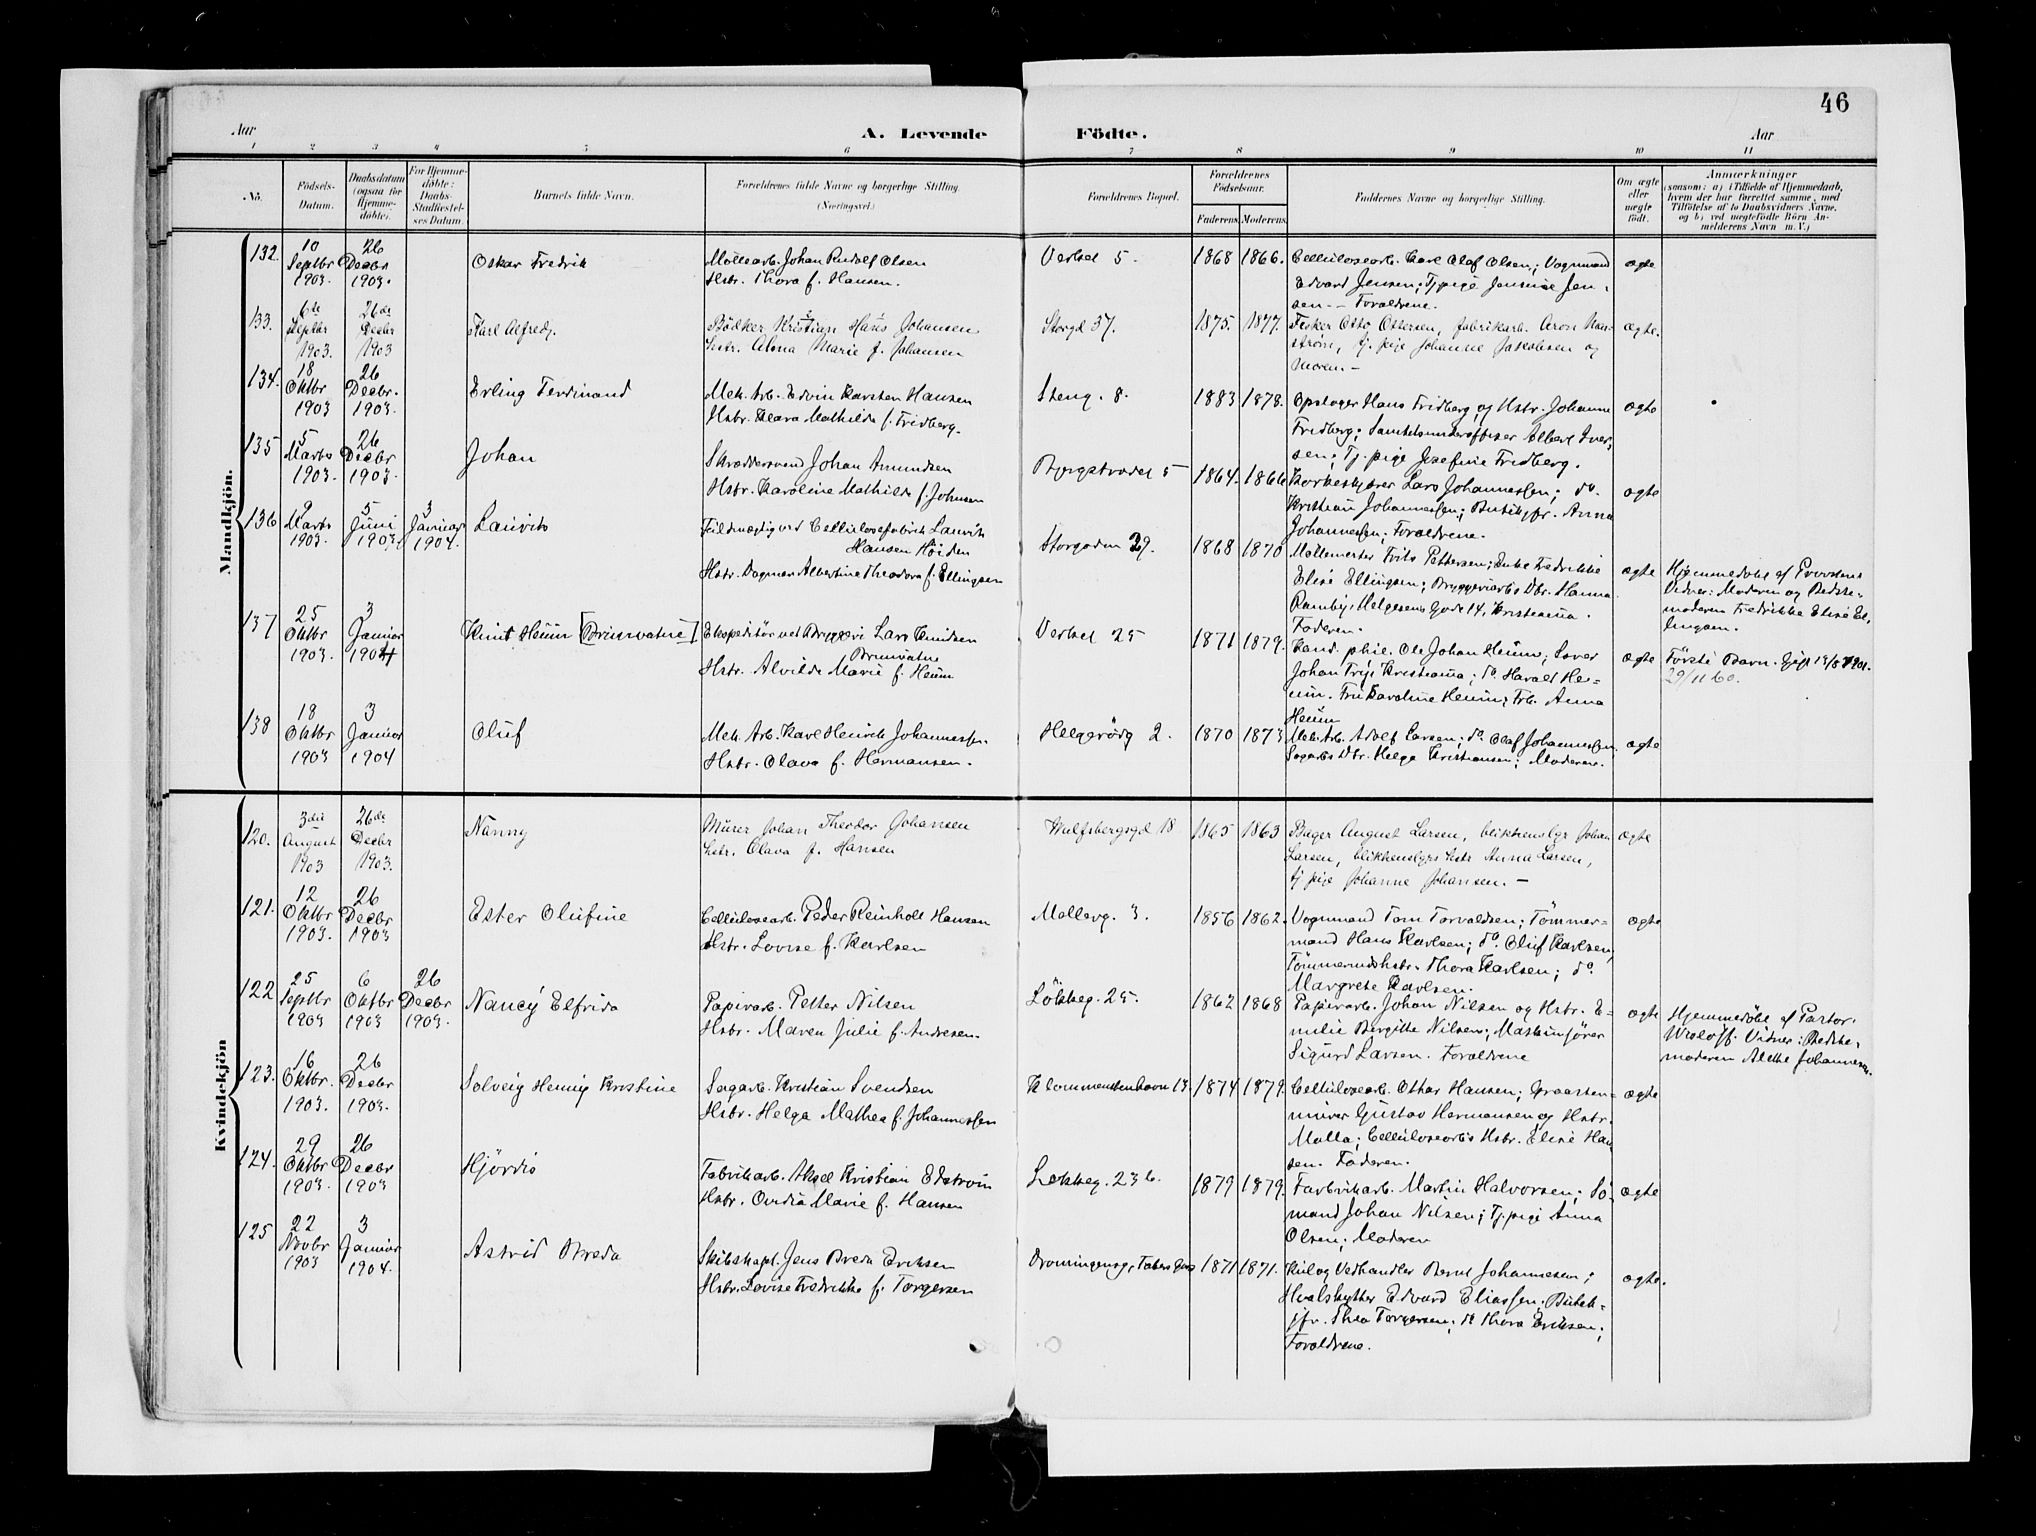 46
Aar
A. Levende
Födte.
Aar
1 2 3 4 5 6 7 8 9 10 11
No.
Födsels-
Datum.
Daabsdatum
(ogsaa for
Hjemme-
döbte).
For Hjemme-
döbte:
Daabs-
Stadfæstel-
ses Datum.
Barnets fulde Navn.
Forældrenes fulde Navne og borgerlige Stilling.
(Næringsvei.)
Forældrenes Bopæl.
Forældrenes
Födselsaar.
Faderens. Moderens.
Faddernes Navne og borgerlige Stilling.
Om ægte
eller
uægte
födt.
Anmærkninger
(saasom: a) i Tilfælde af Hjemmedaab,
hvem der har forrettet samme, med
Tilföielse af to Daabsvidners Navne,
og b) ved uægtefödte Börn An-
melderens Navn m. V.)
Mandkjön.
132. 10 Septbr 1903. 26 Decbr 1903.
Oskar Fredrik
Möllearb. Johan Rudolf Olsen
Hstr. Thora f. Hansen.
Verket 5. 1868 1866.
Cellulosearb. Karl Olaf Olsen; Vognmand
Edvard Jensen; Tj.pige Jensine Jen-
sen - Forældrene.
ægte
133. 6te Septbr 1903. 26de Decbr 1903
Karl Alfred.
Bödker Kristian Hans Johansen
hstr. Alma Marie f. Johansen
Storgd 37. 1875. 1877.
Fisker Otto Ottersen, fabrikarb. Aron
ström, tj. pige Johanne Jakobsen og
moren. -
ægte.
134. 18 Oktbr 1903 26 Decbr. 1903.
Erling Ferdinand
Mek. Arb. Edvin Karsten Hansen
Hstr. Klara Mathilde f. Fridberg.
Steng. 8. 1883 1878.
Opslager Hans Fridberg og Hstr. Johanne
Fridberg; Albert Iver-
sen; Tj. pige Josefine Fridberg.
ægte
135 5 Marts 1903. 26 Decbr 1903.
Johan
Skræddersvend Johan Amundsen
Hstr. Karoline Mathilde f. Johnsen
5 1864. 1866
Korkeskjærer Lars Johannessen; do.
Kristian Johannessen; Butikjfr. Anna
Johannessen; Forældrene.
ægte
136 9 Marts 1903. 5 Juni 1903 3 Januar 1904.
Lauvits
Fuldmægtig ved Cellulosefabrik Lauvits
Hansen Höiden
Hstr. Dagmar Albertine Theodora f. Ellingsen
Storgaden 29. 1868 1870
Möllemester Frits Pettersen; Enke Fredrikke
Elise Ellingsen; Bryggeriarbs Dtr. Hanna
Ramby, Helgesens Gade 14, Kristiania.
Faderen.
ægte
Hjemmedöbt af Provsten.
Vidner: Moderen og Bedste-
moderen Fredrikke Elise El-
lingsen.
137 25 Oktbr 1903. 3 Januar 1904
Knut Heum [Brunvatne]
Ekspeditör ved Bryggeri Lars Knudsen
Brunvatne
Hstr. Alvilde Marie f. Heum
Verket 25 1871 1879.
Kand. phil. Ole Johan Heum;
Johan Kristiania; do. Harald He-
um. Fru Karoline Heum; Frk. Anna
Heum
ægte
Förste Barn. Gift 1901.
29/11 60.
138 18 Oktbr 1903 3 Januar 1904
Oluf
Mek. Arb. Karl Henrik Johannessen.
Hstr. Olava f. Hermansen.
Helgerödg 2. 1870 1873
Mek. Arb. Adolf Larsen; do. Olaf Johannessen,
Sagarbs Dtr. Helga Kristiansen; Moderen.
ægte
Kvindekjön
120. 3die August 1903 26de Decbr 1903.
Nanny
Murer Johan Theodor Johansen
hstr. Olava f. Hansen
Wulfsbergsgd 18 1865 1863
Bager August Larsen, blikkenslgr Johan
Larsen, blikkenslgrs hstr Anna Larsen,
tj pige Johanne Johansen. -
ægte
121. 12 Oktbr 1903. 26 Decbr 1903
Ester Olufine
Cellulosearb. Peder Reinholt Hansen
Hstr. Lovise f. Karlsen
Mollerg. 3. 1856 1862.
Vognmand Tom Torvaldsen; Tömmer-
mand Hans Karlsen; do. Oluf Karlsen;
Tömmermdshstr. Thora Karlsen; do.
Margrete Karlsen.
ægte
122 25 Septbr 1903 6 Oktbr 1903 26 Decbr 1903.
Nancy Elfrida
Papirarb. Petter Nilsen
Hstr. Maren Julie f. Andresen.
Lökkeg. 25. 1862 1868
Papirarb. Johan Nilsen og Hstr. E-
milie Bergitte Nilsen; Maskinförer
Sigurd Larsen. Forældrene
ægte
Hjemmedöbt af Pastor
Wroloff. Vidner: Bedste-
moderen Alethe Johannesen.
123. 16 Oktbr. 1903. 26 Decbr 1903.
Solveig Henny Kristine
Sagarb. Kristian Svendsen
Hstr. Helga Mathea f. Johannessen
Klommenstenhavn 13. 1874 1879.
Cellulosearb. Othar Hansen; Graasten-
murer Gustav Hermansen og Hstr.
Malla; Cellulosearbs Hstr. Elise Han
sen. Faderen.
ægte
124. 29 Oktbr 1903. 26 Decbr 1903
Hjördis
Fabrikarb. Aksel Kristian Edström
Hstr. Ovidia Marie f. Hansen
Lökkeg. 23 b. 1879 1879.
Fabrikarb. Martin Halvorsen; Sö-
mand Johan Nilsen; Tj.pige Anna
Olsen; Moderen
ægte
125 22 Novbr 1903 3 Januar 1904.
Astrid Breda
Skibskapt. Jens Breda Eriksen
Hstr. Lovise Fredrikke f. Torgersen
1871 1871.
Kul og Vedhandler Bernt Johannesen;
Hvalskytter Edvard Eliassen; Butik-
jfr. Thea Torgersen; do Thora Eriksen;
Forældrene.
ægte.